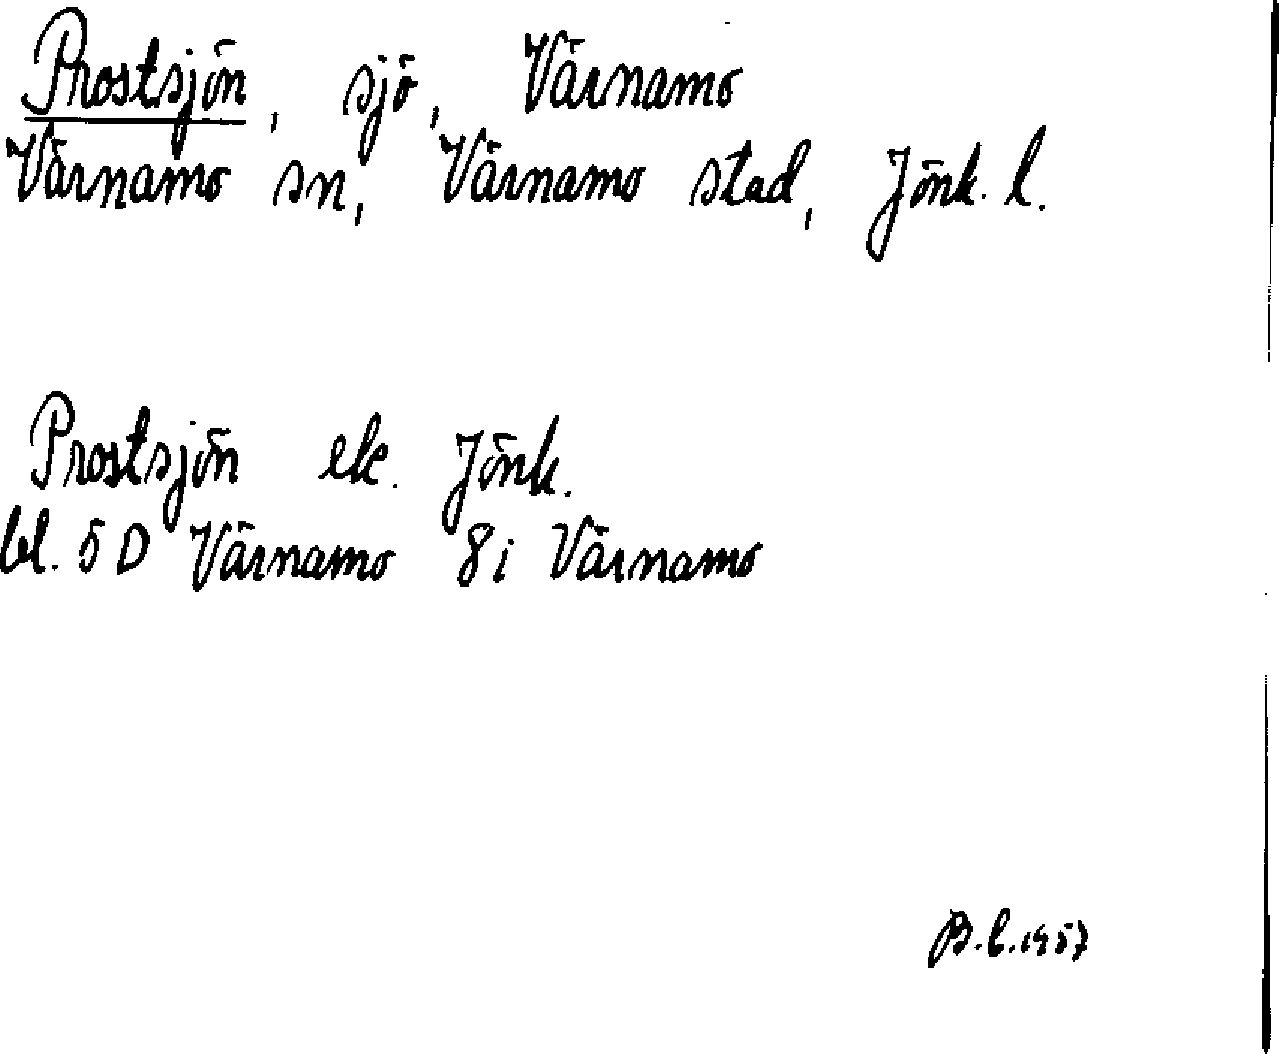 Prostsjön, sjö, Värnamo
Värnamo sn, Värnamo stad, Jönk. l.
Prostsjön ek. Jönk.
bl. 5 D Värnamo 8 i Värnamo
B.C. 1957